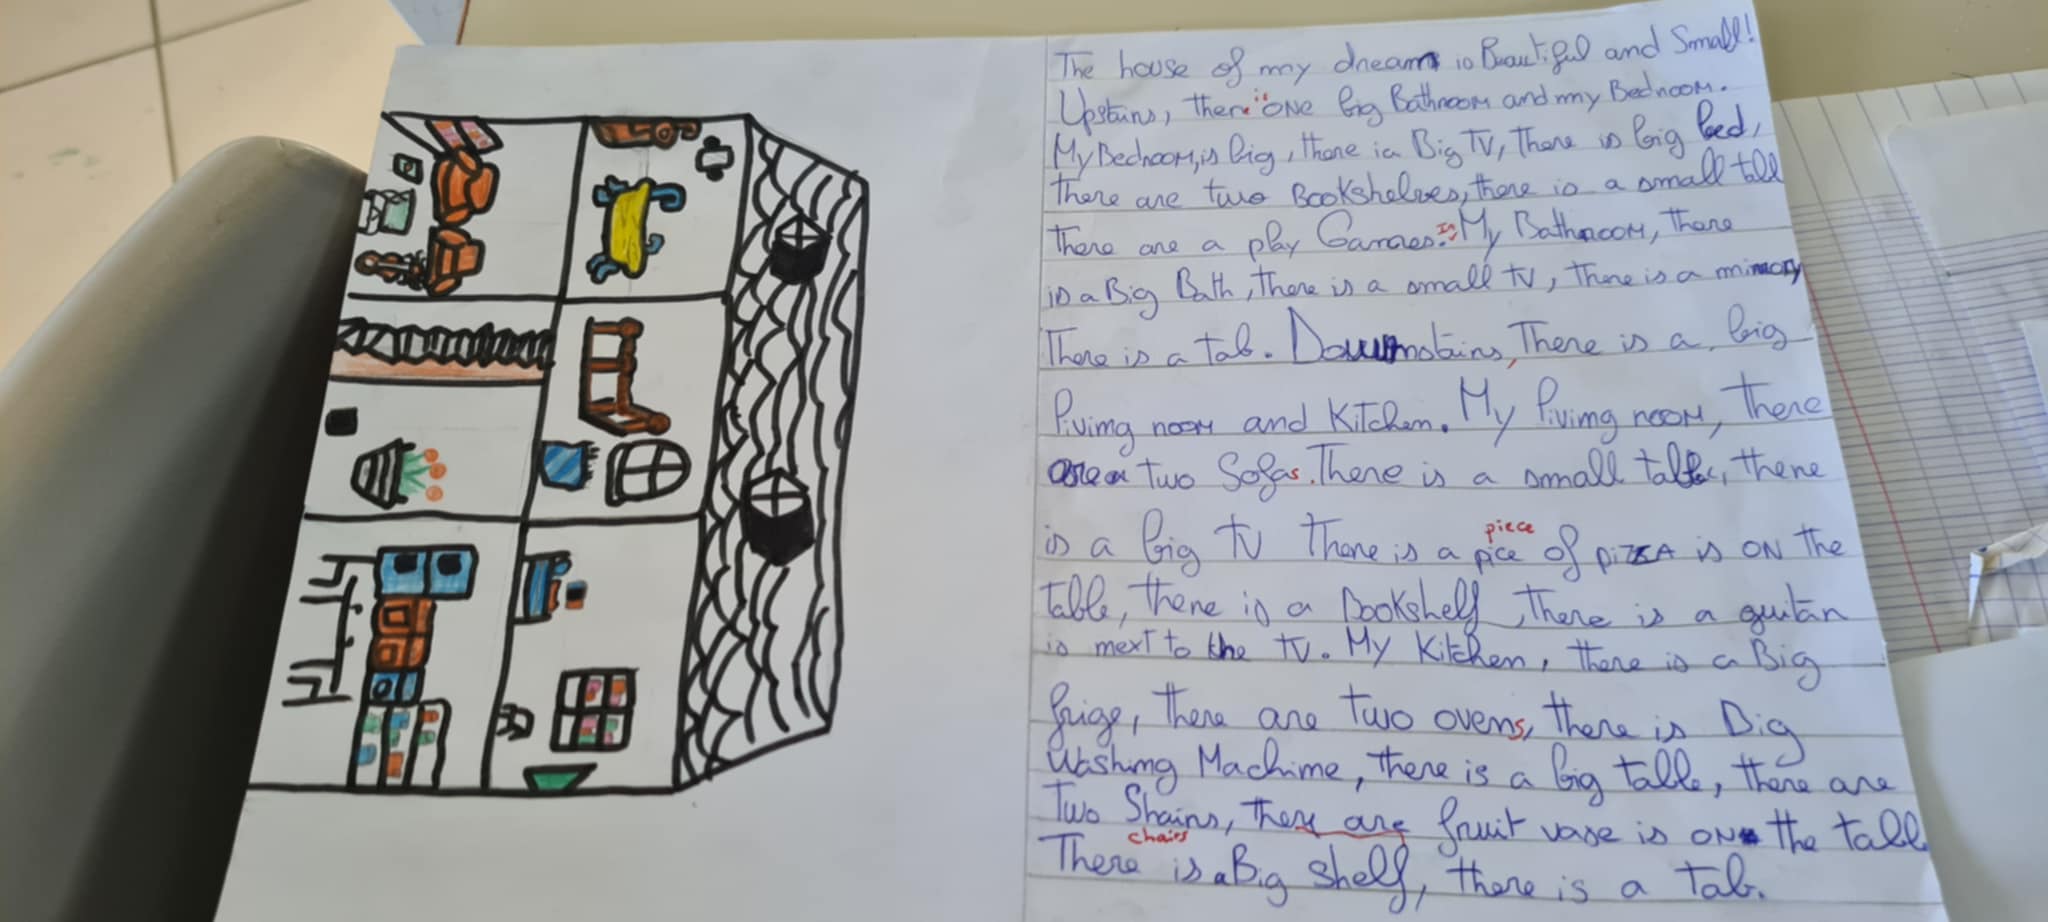 The house of my dream is Beautiful and Small!
Upstairs, there is ONE big Bathroom and my Bedroom.
My Bedroom, is big, there is Big TV, There is big bed,
There are two Bookshelves, there is a small tabl
there are a play Games. In My Bathroom, There
is a Big Bath, There is a small TV, There is a
There is a tab. Downstairs, There is a big
living room and Kitchen. My living room, There
are two Sofas. There is a small table, there
is a big TV There is a pice piece of pizza is ON the
table, there is a Bookshelf, There is a guitar
is next to the TV. My Kitchen, there is a Big
frige, there are two ovens, there is Big
Washing Machine, there is a big table, there are
Two Shairs, there are fruit vase is ON the tabl
chairs
There is a Big shelf, there is a tab.